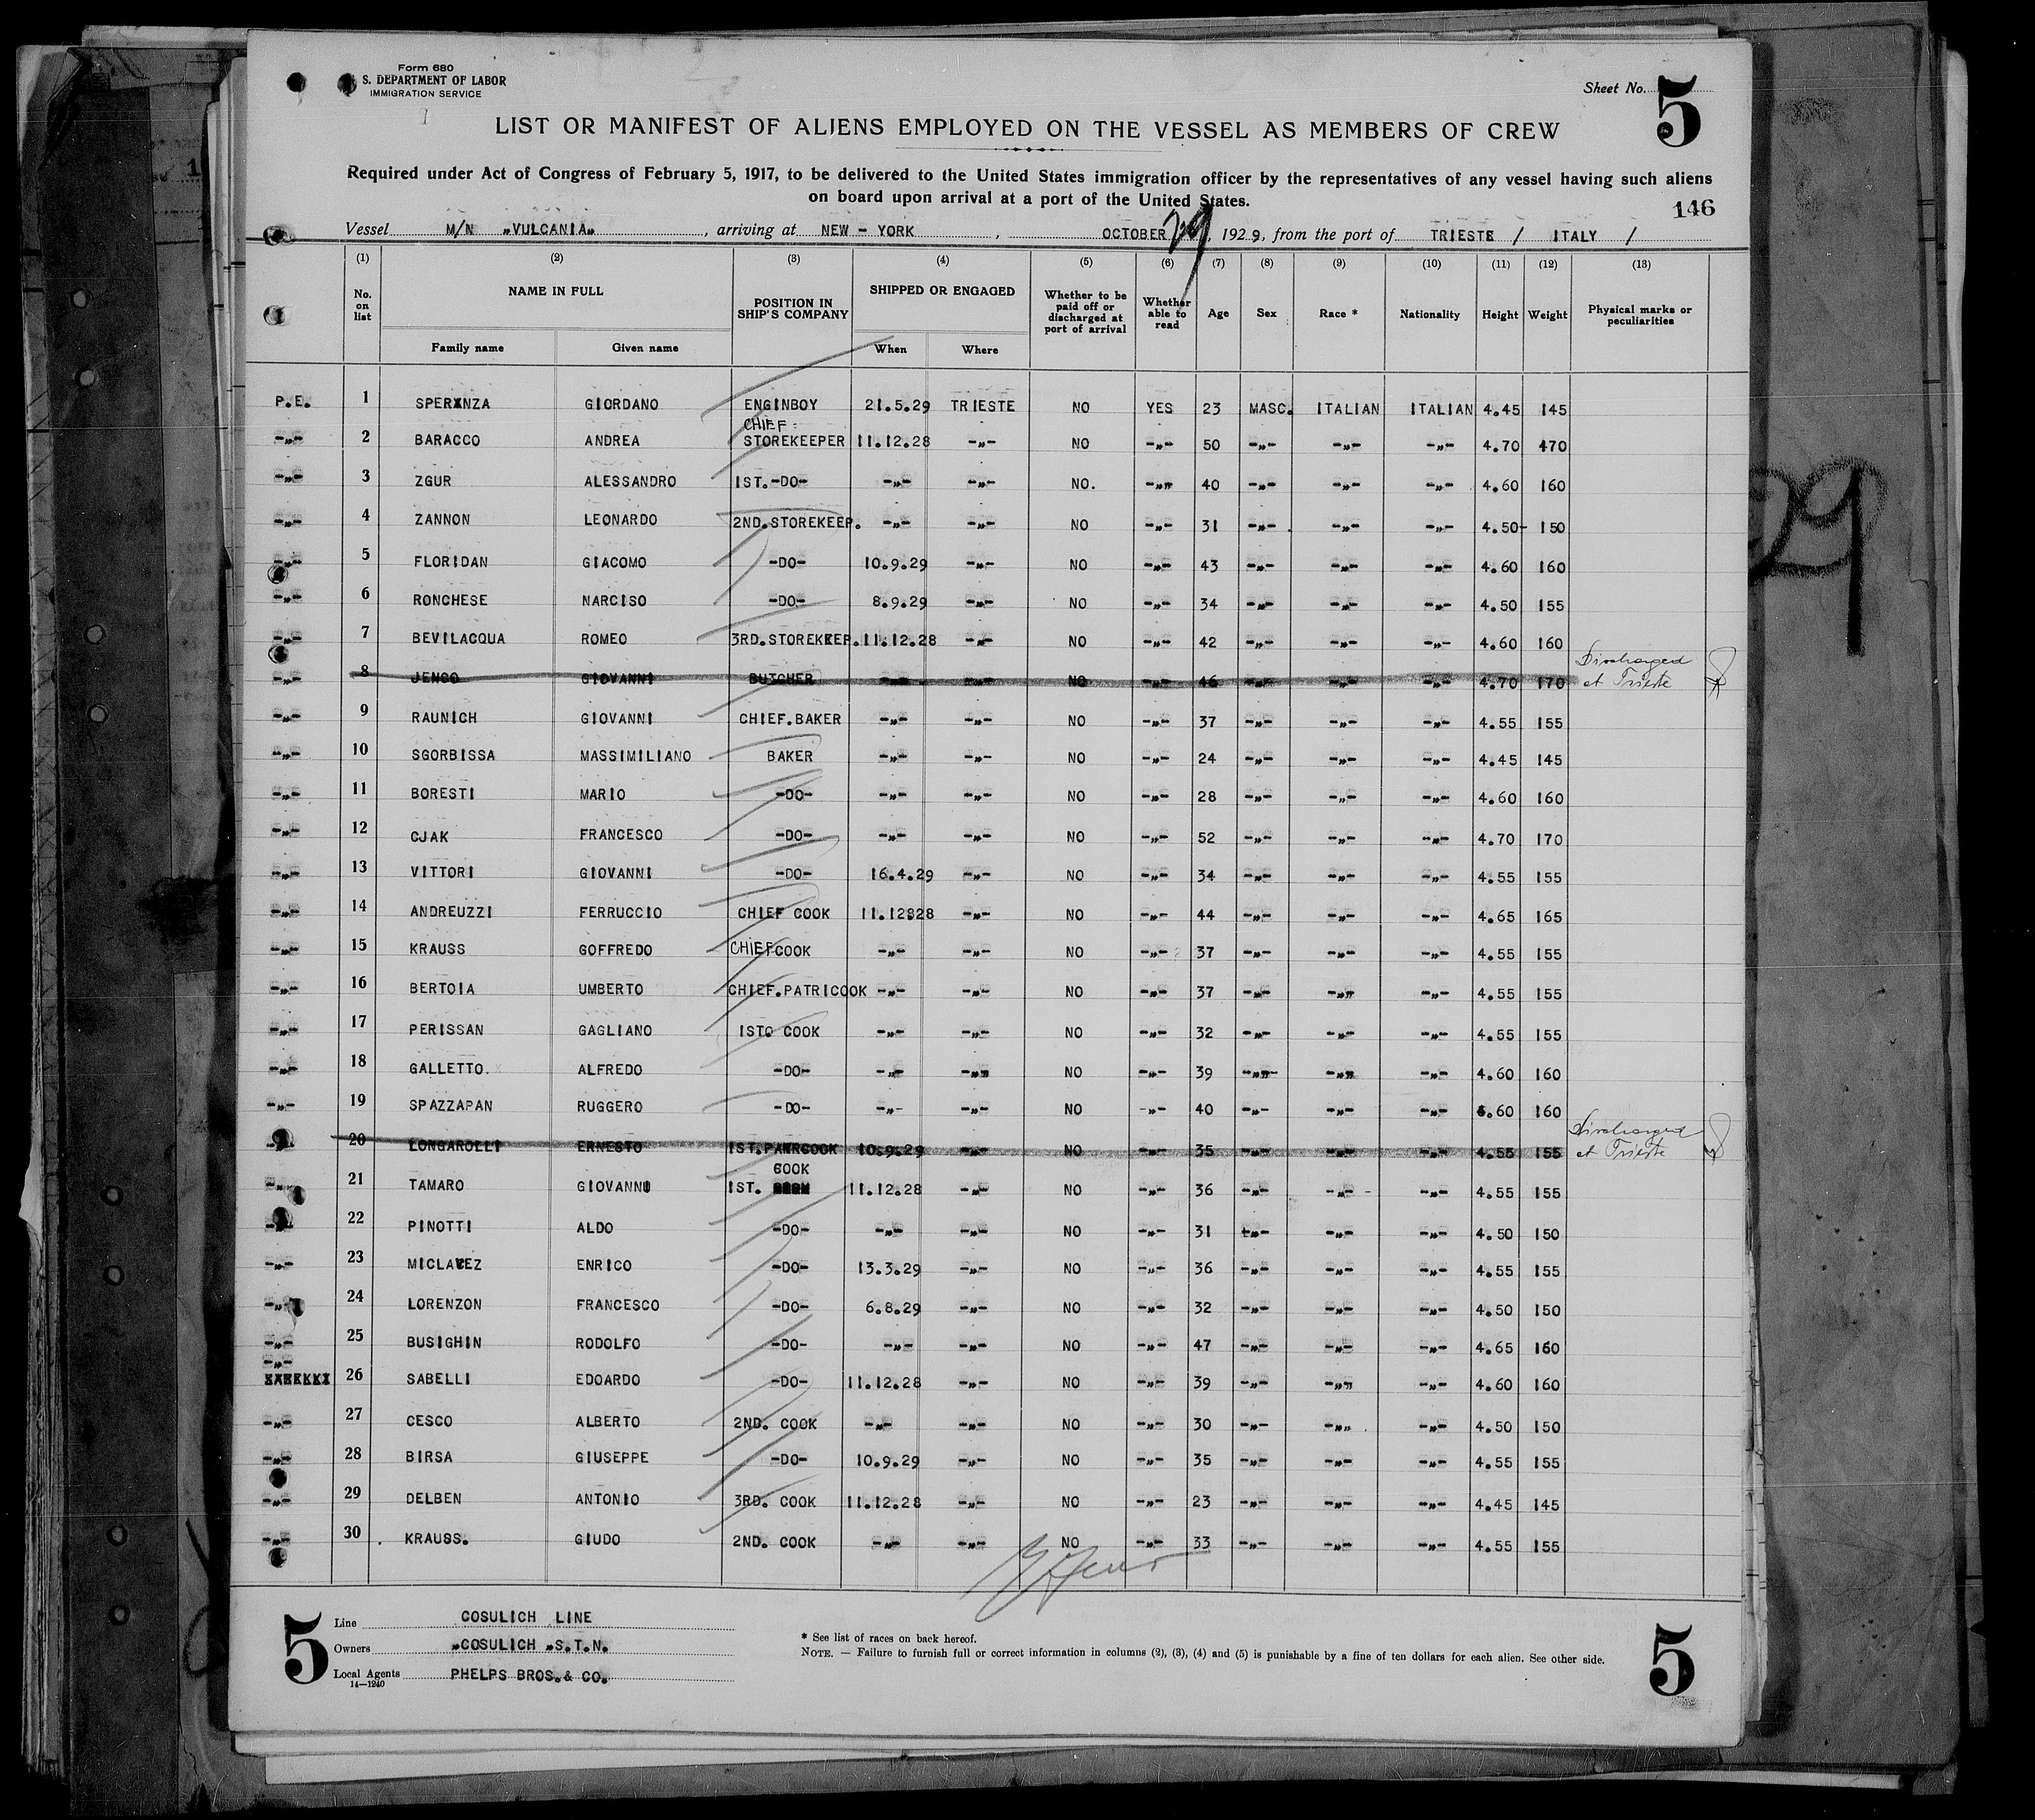 Form 680
S. DEPARTMENT OF LABOR
IMMIGRATION SERVICE
Sheet No. 5
LIST OR MANIFEST OF ALIENS EMPLOYED ON THE VESSEL AS MEMBERS OF CREW
Required under Act of Congress of February 5, 1917, to be delivered to the United States immigration officer by the representatives of any vessel having such aliens
on board upon arrival at a port of the United States.
146
Vessel M/N „VULCANIA„ , arriving at NEW - YORK , OCTOBER 29, 1929, from the port of TRIESTE / ITALY /
(1) (2) (3) (4) (5) (6) (7) (8) (9) (10) (11) (12) (13)
No. on list NAME IN FULL POSITION IN SHIP'S COMPANY SHIPPED OR ENGAGED Whether to be paid off or discharged at port of arrival Whether able to read Age Sex Race * Nationality Height Weight Physical marks or peculiarities
Family name Given name When Where
P.E. 1 SPERANZA GIORDANO ENGINBOY 21.5.29 TRIESTE NO YES 23 MASC. ITALIAN ITALIAN 4.45 145
-„- 2 BARACCO ANDREA CHIEF STOREKEEPER 11.12.28 -„- NO -„- 50 -„- -„- -„- 4.70 470
-„- 3 ZGUR ALESSANDRO 1ST.-DO- -„- -„- NO. -„- 40 -„- -„- -„- 4.60 160
-„- 4 ZANNON LEONARDO 2ND.STOREKEEP. -„- -„- NO -„- 31 -„- -„- -„- 4.50- 150
-„- 5 FLORIDAN GIACOMO -DO- 10.9.29 -„- NO -„- 43 -„- -„- -„- 4.60 160
-„- 6 RONCHESE NARCISO -DO- 8.9.29 -„- NO -„- 34 -„- -„- -„- 4.50 155
-„- 7 BEVILACQUA ROMEO 3RD.STOREKEEP. 11.12.28 -„- NO -„- 42 -„- -„- -„- 4.60 160
-„- 8 JENCO GIOVANNI BUTCHER -„- -„- NO -„- 46 -„- -„- -„- 4.70 170 Discharged at Trieste
-„- 9 RAUNICH GIOVANNI CHIEF.BAKER -„- -„- NO -„- 37 -„- -„- -„- 4.55 155
-„- 10 SGORBISSA MASSIMILIANO BAKER -„- -„- NO -„- 24 -„- -„- -„- 4.45 145
-„- 11 BORESTI MARIO -DO- -„- -„- NO -„- 28 -„- -„- -„- 4.60 160
-„- 12 CJAK FRANCESCO -DO- -„- -„- NO -„- 52 -„- -„- -„- 4.70 170
-„- 13 VITTORI GIOVANNI -DO- 16.4.29 -„- NO -„- 34 -„- -„- -„- 4.55 155
-„- 14 ANDREUZZI FERRUCCIO CHIEF COOK 11.12828 -„- NO -„- 44 -„- -„- -„- 4.65 165
-„- 15 KRAUSS GOFFREDO CHIEF COOK -„- -„- NO -„- 37 -„- -„- -„- 4.55 155
-„- 16 BERTOIA UMBERTO CHIEF.PATRICOOK -„- -„- NO -„- 37 -„- -„- -„- 4.55 155
-„- 17 PERISSAN GAGLIANO 1STO COOK -„- -„- NO -„- 32 -„- -„- -„- 4.55 155
-„- 18 GALLETTO. ALFREDO -DO- -„- -„- NO -„- 39 -„- -„- -„- 4.60 160
-„- 19 SPAZZAPAN RUGGERO -DO- -„- -„- NO -„- 40 -„- -„- -„- 4.60 160
-„- 20 LONGAROLLI ERNESTO 1ST.PATRCOOK 10.9.29 -„- NO -„- 35 -„- -„- -„- 4.55 155 Discharged at Trieste
-„- 21 TAMARO GIOVANNI 1ST. COOK 11.12.28 -„- NO -„- 36 -„- -„- -„- 4.55 155
-„- 22 PINOTTI ALDO -DO- -„- -„- NO -„- 31 -„- -„- -„- 4.50 150
-„- 23 MICLAVEZ ENRICO -DO- 13.3.29 -„- NO -„- 36 -„- -„- -„- 4.55 155
-„- 24 LORENZON FRANCESCO -DO- 6.8.29 -„- NO -„- 32 -„- -„- -„- 4.50 150
-„- 25 BUSIGHIN RODOLFO -DO- -„- -„- NO -„- 47 -„- -„- -„- 4.65 160
-„- 26 SABELLI EDOARDO -DO- 11.12.28 -„- NO -„- 39 -„- -„- -„- 4.60 160
-„- 27 CESCO ALBERTO 2ND. COOK -„- -„- NO -„- 30 -„- -„- -„- 4.50 150
-„- 28 BIRSA GIUSEPPE -DO- 10.9.29 -„- NO -„- 35 -„- -„- -„- 4.55 155
-„- 29 DELBEN ANTONIO 3RD. COOK 11.12.28 -„- NO -„- 23 -„- -„- -„- 4.45 145
-„- 30 KRAUSS. GIUDO 2ND. COOK -„- -„- NO -„- 33 -„- -„- -„- 4.55 155
5
Line COSULICH LINE
Owners „COSULICH „S.T.N.
Local Agents PHELPS BROS. & CO.
14—1240
* See list of races on back hereof.
NOTE. — Failure to furnish full or correct information in columns (2), (3), (4) and (5) is punishable by a fine of ten dollars for each alien. See other side.
5
29